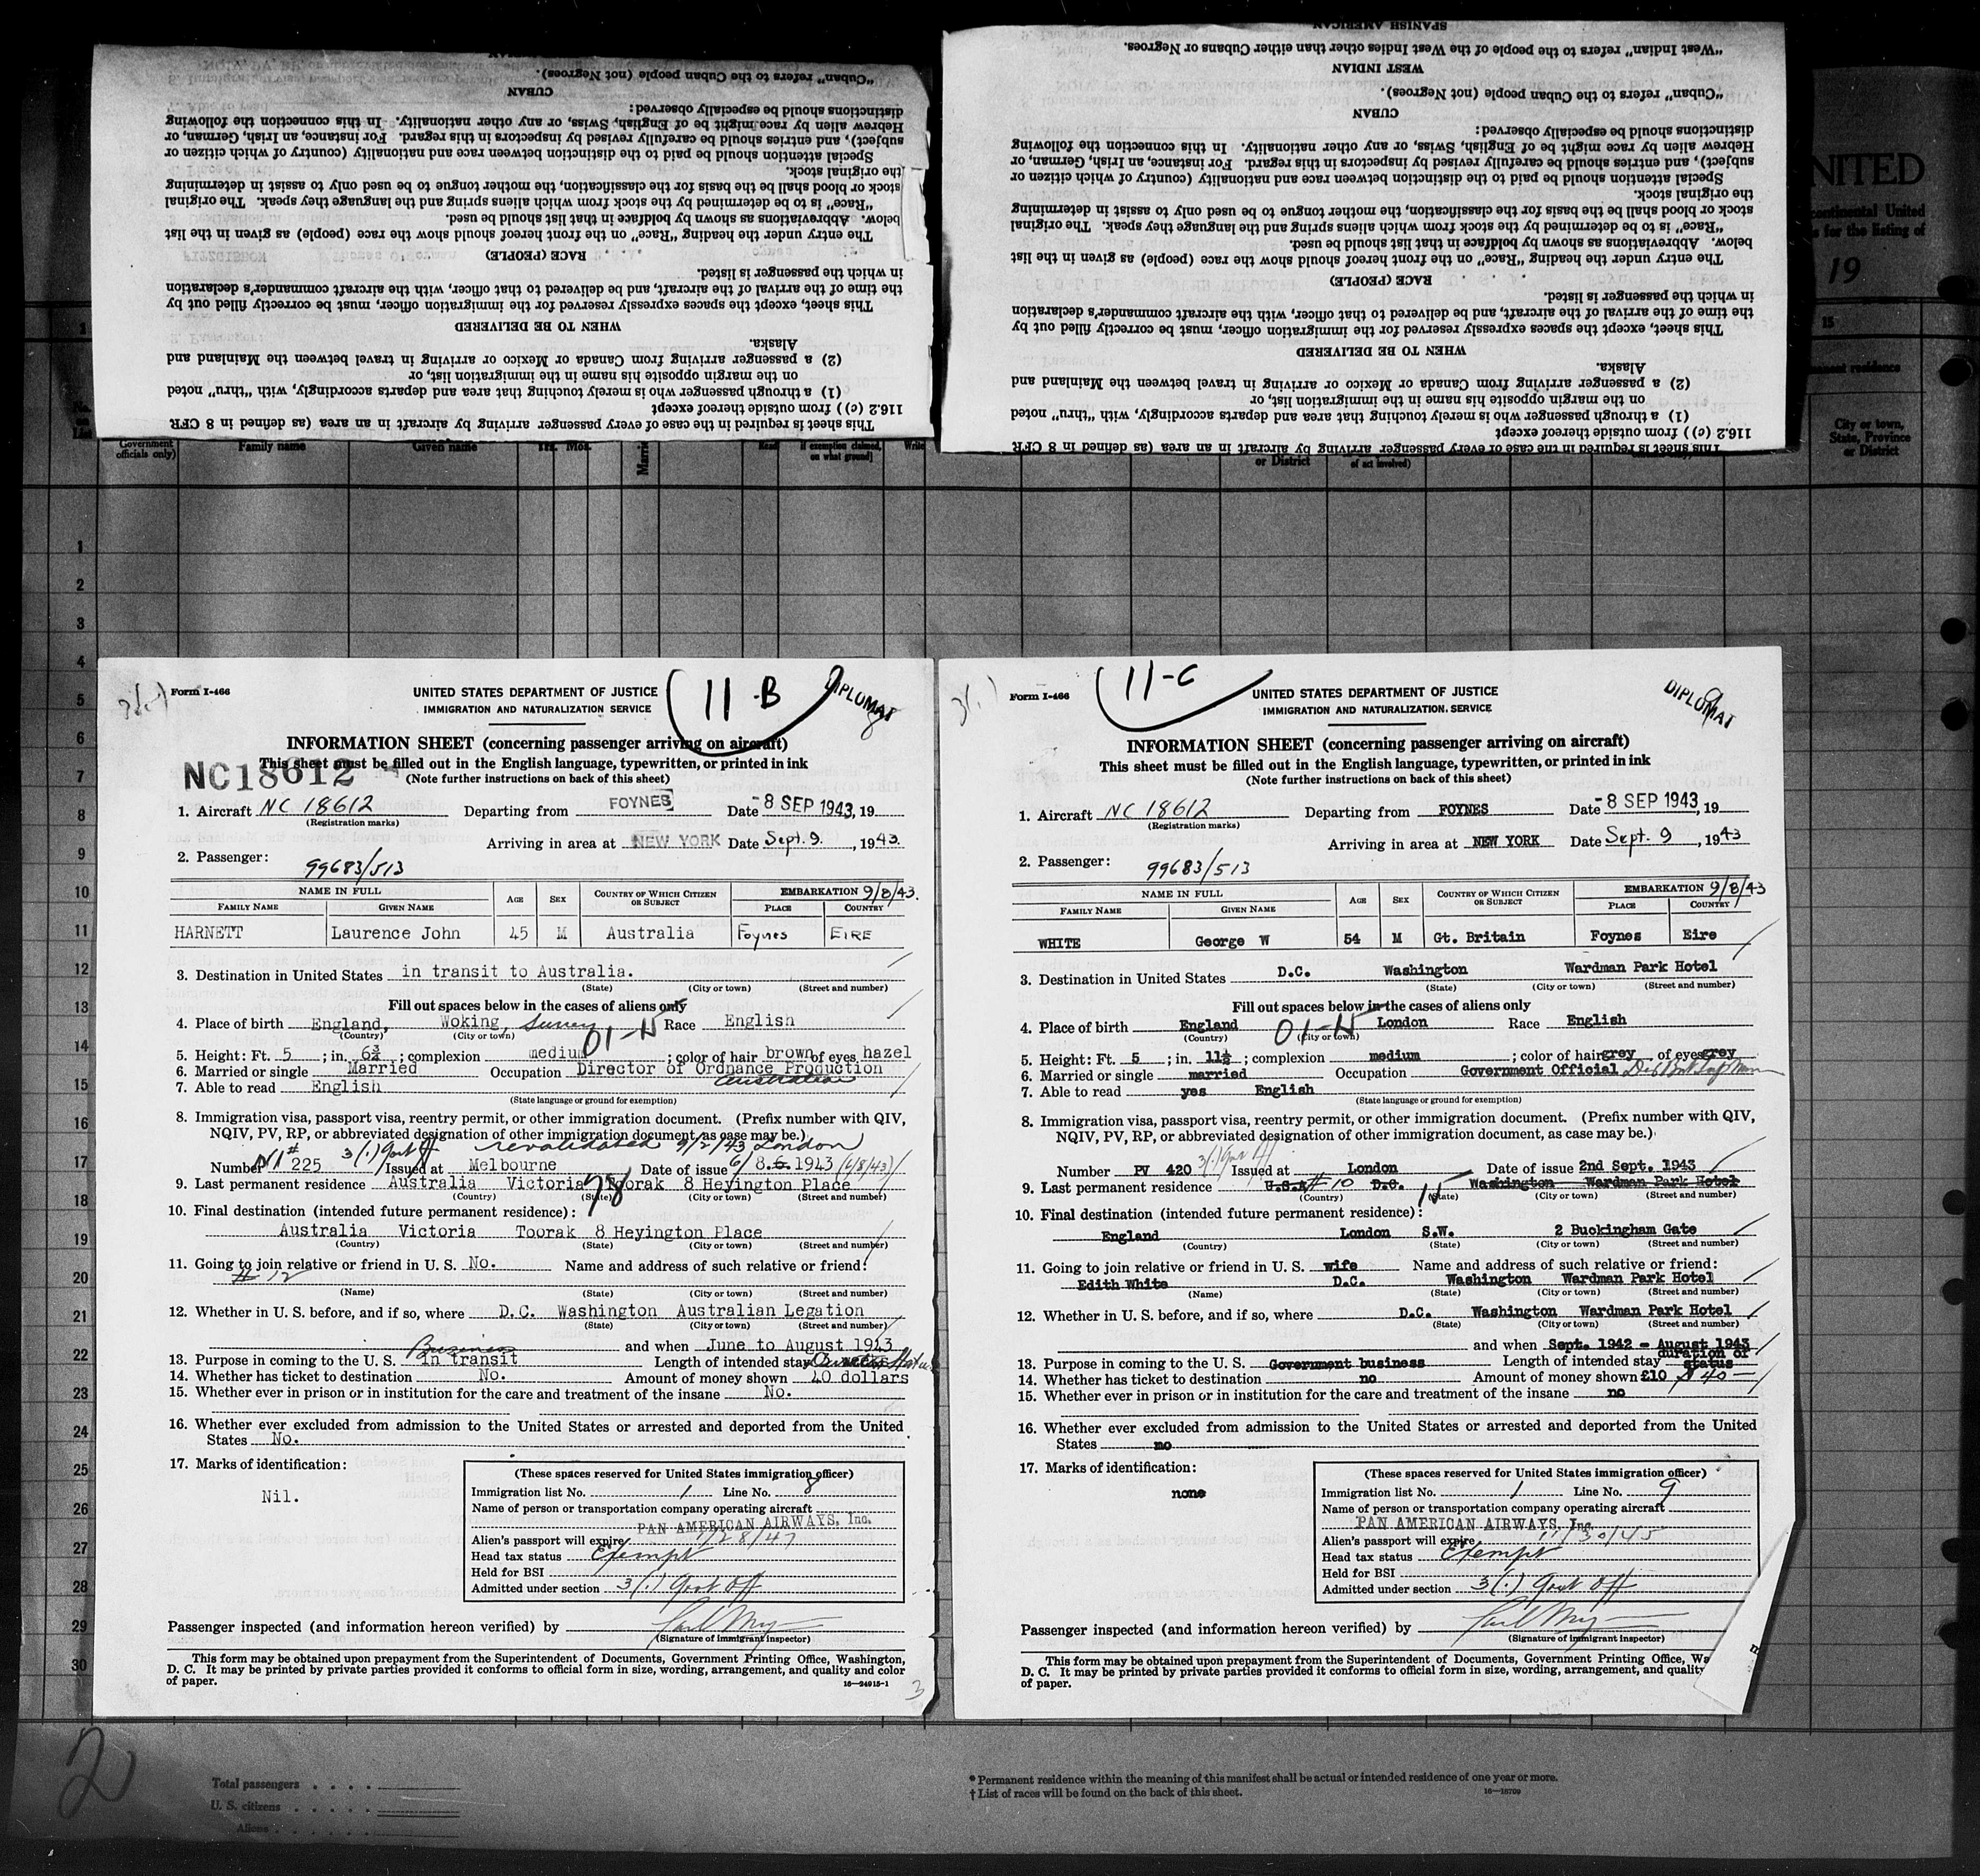 SPANISH AMERICAN
"West Indian" refers to the people of the West Indies other than either Cubans or Negroes.
WEST INDIAN
"Cuban" refers to the Cuban people (not Negroes).
CUBAN
distinctions should be especially observed:
Hebrew alien by race might be of English, Swiss, or any other nationality. In this connection the following
subject), and entries should be carefully revised by inspectors in this regard. For instance, an Irish, German, or
Special attention should be paid to the distinction between race and nationality (country of which citizen or
the original stock.
stock or blood shall be the basis for the classification, the mother tongue to be used only to assist in determining
"Race" is to be determined by the stock from which aliens spring and the language they speak. The original
below. Abbreviations as shown by boldface in that list should be used.
The entry under the heading "Race" on the front hereof should show the race (people) as given in the list
RACE (PEOPLE)
in which the passenger is listed.
the time of the arrival of the aircraft, and be delivered to that officer, with the aircraft commander's declaration
This sheet, except the spaces expressly reserved for the immigration officer, must be correctly filled out by
WHEN TO BE DELIVERED
Alaska.
(2) a passenger arriving from Canada or Mexico or arriving in travel between the Mainland and
on the margin opposite his name in the immigration list, or
(1) a through passenger who is merely touching that area and departs accordingly, with "thru" noted
116.2 (c)) from outside thereof except
This sheet is required in the case of every passenger arriving by aircraft in an area (as defined in 8 CFR
NITED
continental United
for the listing of
19
15
residence
City or town,
State, Province
or District
Government officials only)
Family name
Given name
Yrs. Mos.
Read
if exemption claimed, on what ground]
or District
Form I-466
11-B
DIPLOMAT
UNITED STATES DEPARTMENT OF JUSTICE
IMMIGRATION AND NATURALIZATION SERVICE
INFORMATION SHEET (concerning passenger arriving on aircraft)
This sheet must be filled out in the English language, typewritten, or printed in ink
NC18612
(Note further instructions on back of this sheet)
1. Aircraft NC 18612 Departing from FOYNES Date -8 SEP 1943, 19
(Registration marks)
Arriving in area at NEW YORK Date Sept. 9. , 1943.
2. Passenger: 99683/513
NAME IN FULL AGE SEX COUNTRY OF WHICH CITIZEN OR SUBJECT EMBARKATION 9/8/43.
FAMILY NAME GIVEN NAME PLACE COUNTRY
HARNETT Laurence John 45 M Australia Foynes EIRE
3. Destination in United States in transit to Australia.
(State) (City or town) (Street and number)
Fill out spaces below in the cases of aliens only
4. Place of birth England, Woking, Surrey 01-H Race English
(Country) (City or town)
5. Height: Ft. 5 ; in. 6¾ ; complexion medium ; color of hair brown of eyes hazel
6. Married or single Married Occupation Director of Ordnance Production
Australian
7. Able to read English
(State language or ground for exemption)
8. Immigration visa, passport visa, reentry permit, or other immigration document. (Prefix number with QIV,
NQIV, PV, RP, or abbreviated designation of other immigration document, as case may be.)
revalidated 9/2/43 London
Number # 225 Issued at Melbourne Date of issue 6/8.6.1943 (6/8/43)
9. Last permanent residence Australia Victoria Toorak 8 Heyington Place
(Country) (State) (City or town) (Street and number)
10. Final destination (intended future permanent residence): 78
Australia Victoria Toorak 8 Heyington Place
(Country) (State) (City or town) (Street and number)
11. Going to join relative or friend in U. S. No. Name and address of such relative or friend:
# 12
(Name) (State) (City or town) (Street and number)
12. Whether in U. S. before, and if so, where D.C. Washington Australian Legation
(State) (City or town) (Street and number)
and when June to August 1943
Business
13. Purpose in coming to the U. S. in transit Length of intended stay
14. Whether has ticket to destination No. Amount of money shown 40 dollars
15. Whether ever in prison or in institution for the care and treatment of the insane No.
16. Whether ever excluded from admission to the United States or arrested and deported from the United
States No.
17. Marks of identification:
Nil.
(These spaces reserved for United States immigration officer)
Immigration list No. 1 Line No. 8
Name of person or transportation company operating aircraft
PAN AMERICAN AIRWAYS, Inc.
Alien's passport will expire 1/28/47
Head tax status Exempt
Held for BSI
Admitted under section 3(1) Govt Off
Passenger inspected (and information hereon verified) by
(Signature of immigrant inspector)
This form may be obtained upon prepayment from the Superintendent of Documents, Government Printing Office, Washington,
D. C. It may be printed by private parties provided it conforms to official form in size, wording, arrangement, and quality and color
of paper.
16—24915-1
3
Form I-466
11-C
DIPLOMAT
UNITED STATES DEPARTMENT OF JUSTICE
IMMIGRATION AND NATURALIZATION SERVICE
INFORMATION SHEET (concerning passenger arriving on aircraft)
This sheet must be filled out in the English language, typewritten, or printed in ink
(Note further instructions on back of this sheet)
1. Aircraft NC 18612 Departing from FOYNES Date -8 SEP 1943, 19
(Registration marks)
Arriving in area at NEW YORK Date Sept. 9 , 1943
2. Passenger: 99683/513
NAME IN FULL AGE SEX COUNTRY OF WHICH CITIZEN OR SUBJECT EMBARKATION 9/8/43
FAMILY NAME GIVEN NAME PLACE COUNTRY
WHITE George W 54 M Gt. Britain Foynes Eire
3. Destination in United States D.C. Washington Wardman Park Hotel
(State) (City or town) (Street and number)
Fill out spaces below in the cases of aliens only
4. Place of birth England 01-H London Race English
(Country) (City or town)
5. Height: Ft. 5 ; in. 11½ ; complexion medium ; color of hair grey of eyes grey
6. Married or single married Occupation Government Official
7. Able to read yes English
(State language or ground for exemption)
8. Immigration visa, passport visa, reentry permit, or other immigration document. (Prefix number with QIV,
NQIV, PV, RP, or abbreviated designation of other immigration document, as case may be.)
Number PV 420 Issued at London Date of issue 2nd Sept. 1943
9. Last permanent residence U.S.A. #10 D.C. Washington Wardman Park Hotel
(Country) (State) (City or town) (Street and number)
10. Final destination (intended future permanent residence):
England London S.W. 2 Buckingham Gate
(Country) (State) (City or town) (Street and number)
11. Going to join relative or friend in U. S. wife Name and address of such relative or friend:
Edith White D.C. Washington Wardman Park Hotel
(Name) (State) (City or town) (Street and number)
12. Whether in U. S. before, and if so, where D.C. Washington Wardman Park Hotel
(State) (City or town) (Street and number)
and when Sept. 1942 - August 1943
13. Purpose in coming to the U. S. Government business Length of intended stay duration of status
14. Whether has ticket to destination no Amount of money shown £10 $40—
15. Whether ever in prison or in institution for the care and treatment of the insane no
16. Whether ever excluded from admission to the United States or arrested and deported from the United
States no
17. Marks of identification:
none
(These spaces reserved for United States immigration officer)
Immigration list No. 1 Line No. 9
Name of person or transportation company operating aircraft
PAN AMERICAN AIRWAYS, Inc.
Alien's passport will expire 11/30/45
Head tax status Exempt
Held for BSI
Admitted under section 3(1) Govt Off
Passenger inspected (and information hereon verified) by
(Signature of immigrant inspector)
This form may be obtained upon prepayment from the Superintendent of Documents, Government Printing Office,
D. C. It may be printed by private parties provided it conforms to official form in size, wording, arrangement, and quality
of paper.
2
Total passengers
U. S. citizens
Aliens
* Permanent residence within the meaning of this manifest shall be actual or intended residence of one year or more.
† List of races will be found on the back of this sheet.
16—18709